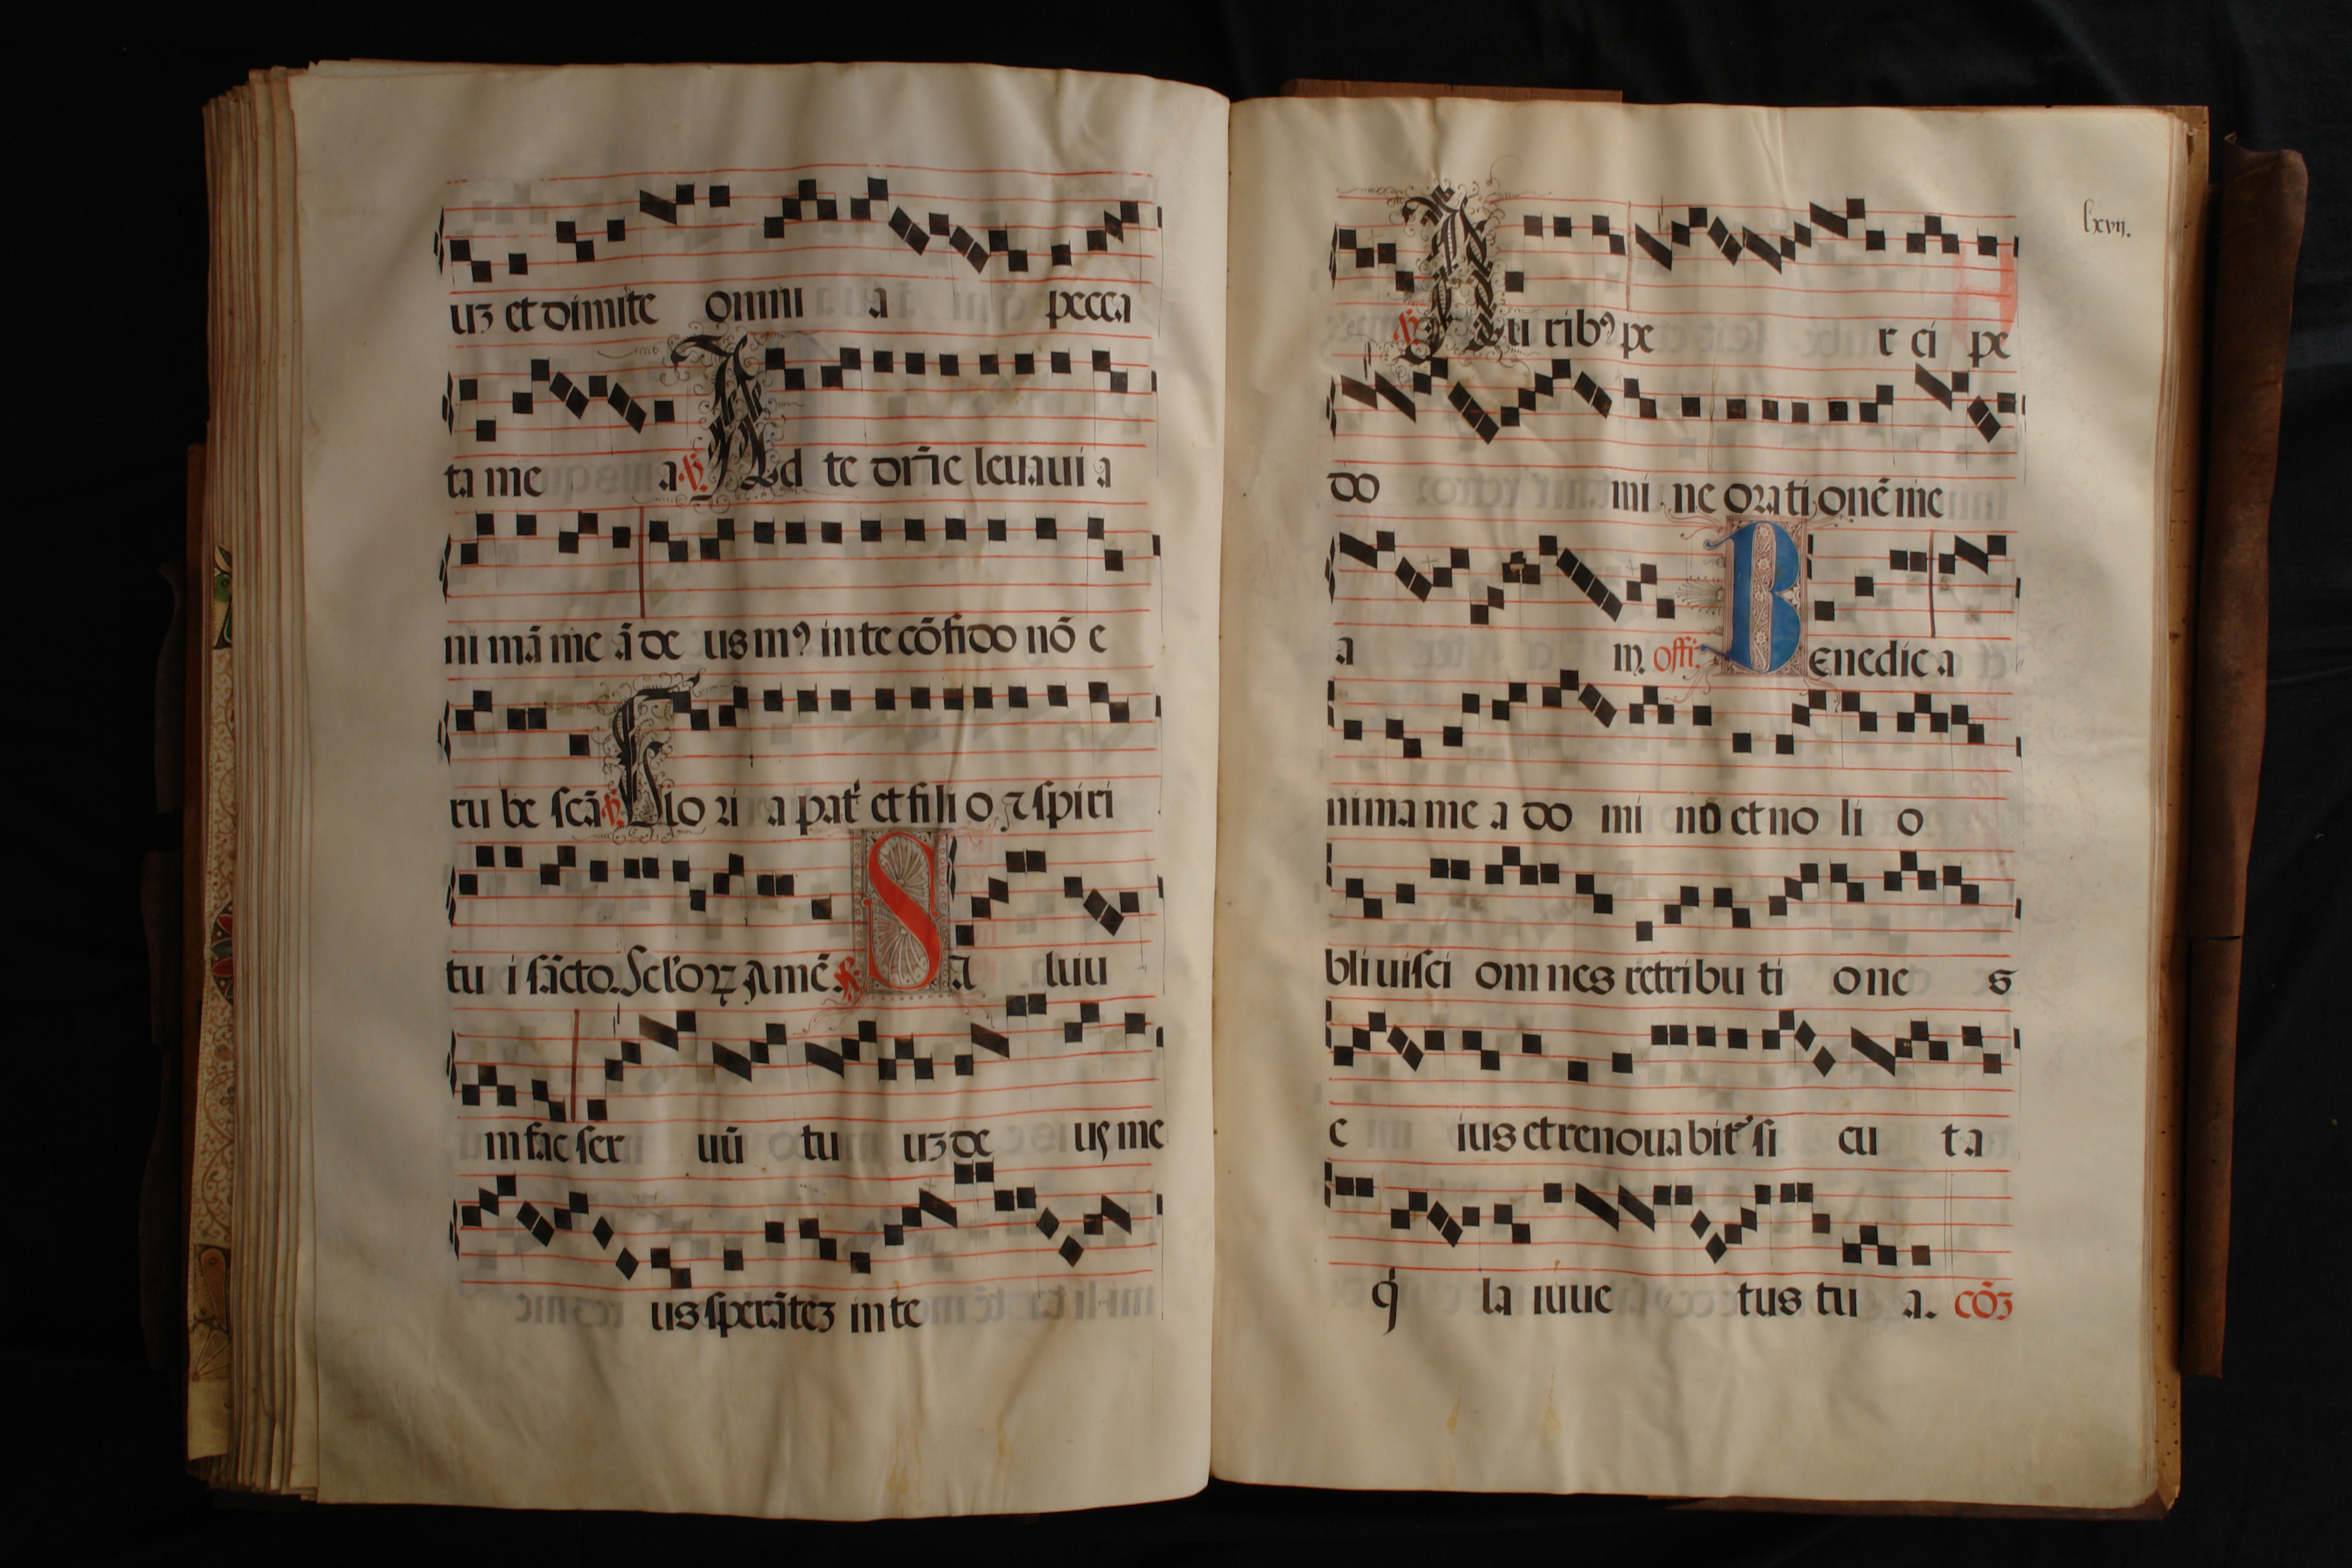 uʒ et dimite omni a pecca
ta me a ℣. Ad te dn̄e leuaui a
ni mā me ā de us mꝰ in te cōfido nō e
ru be ſcā ℣. Glo ri a pat̉ et fili o ⁊ ſpiri
tu i sācto. Sc̄lоꝝ Amē. ℟. Sa luu
m fac ſer uū tu uʒ de us me
us ſperāteʒ in te
lxvij.
℣. Au ribꝰ pe r ci pe
do mi ne ora ti onē me
a m. offi. Benedic a
ni ma me a do mi nō et no li o
bli uiſci om nes retri bu ti one s
e ius et renoua bit̉ ſi cu t a
q̇ la iuue tus tu a. cōʒ